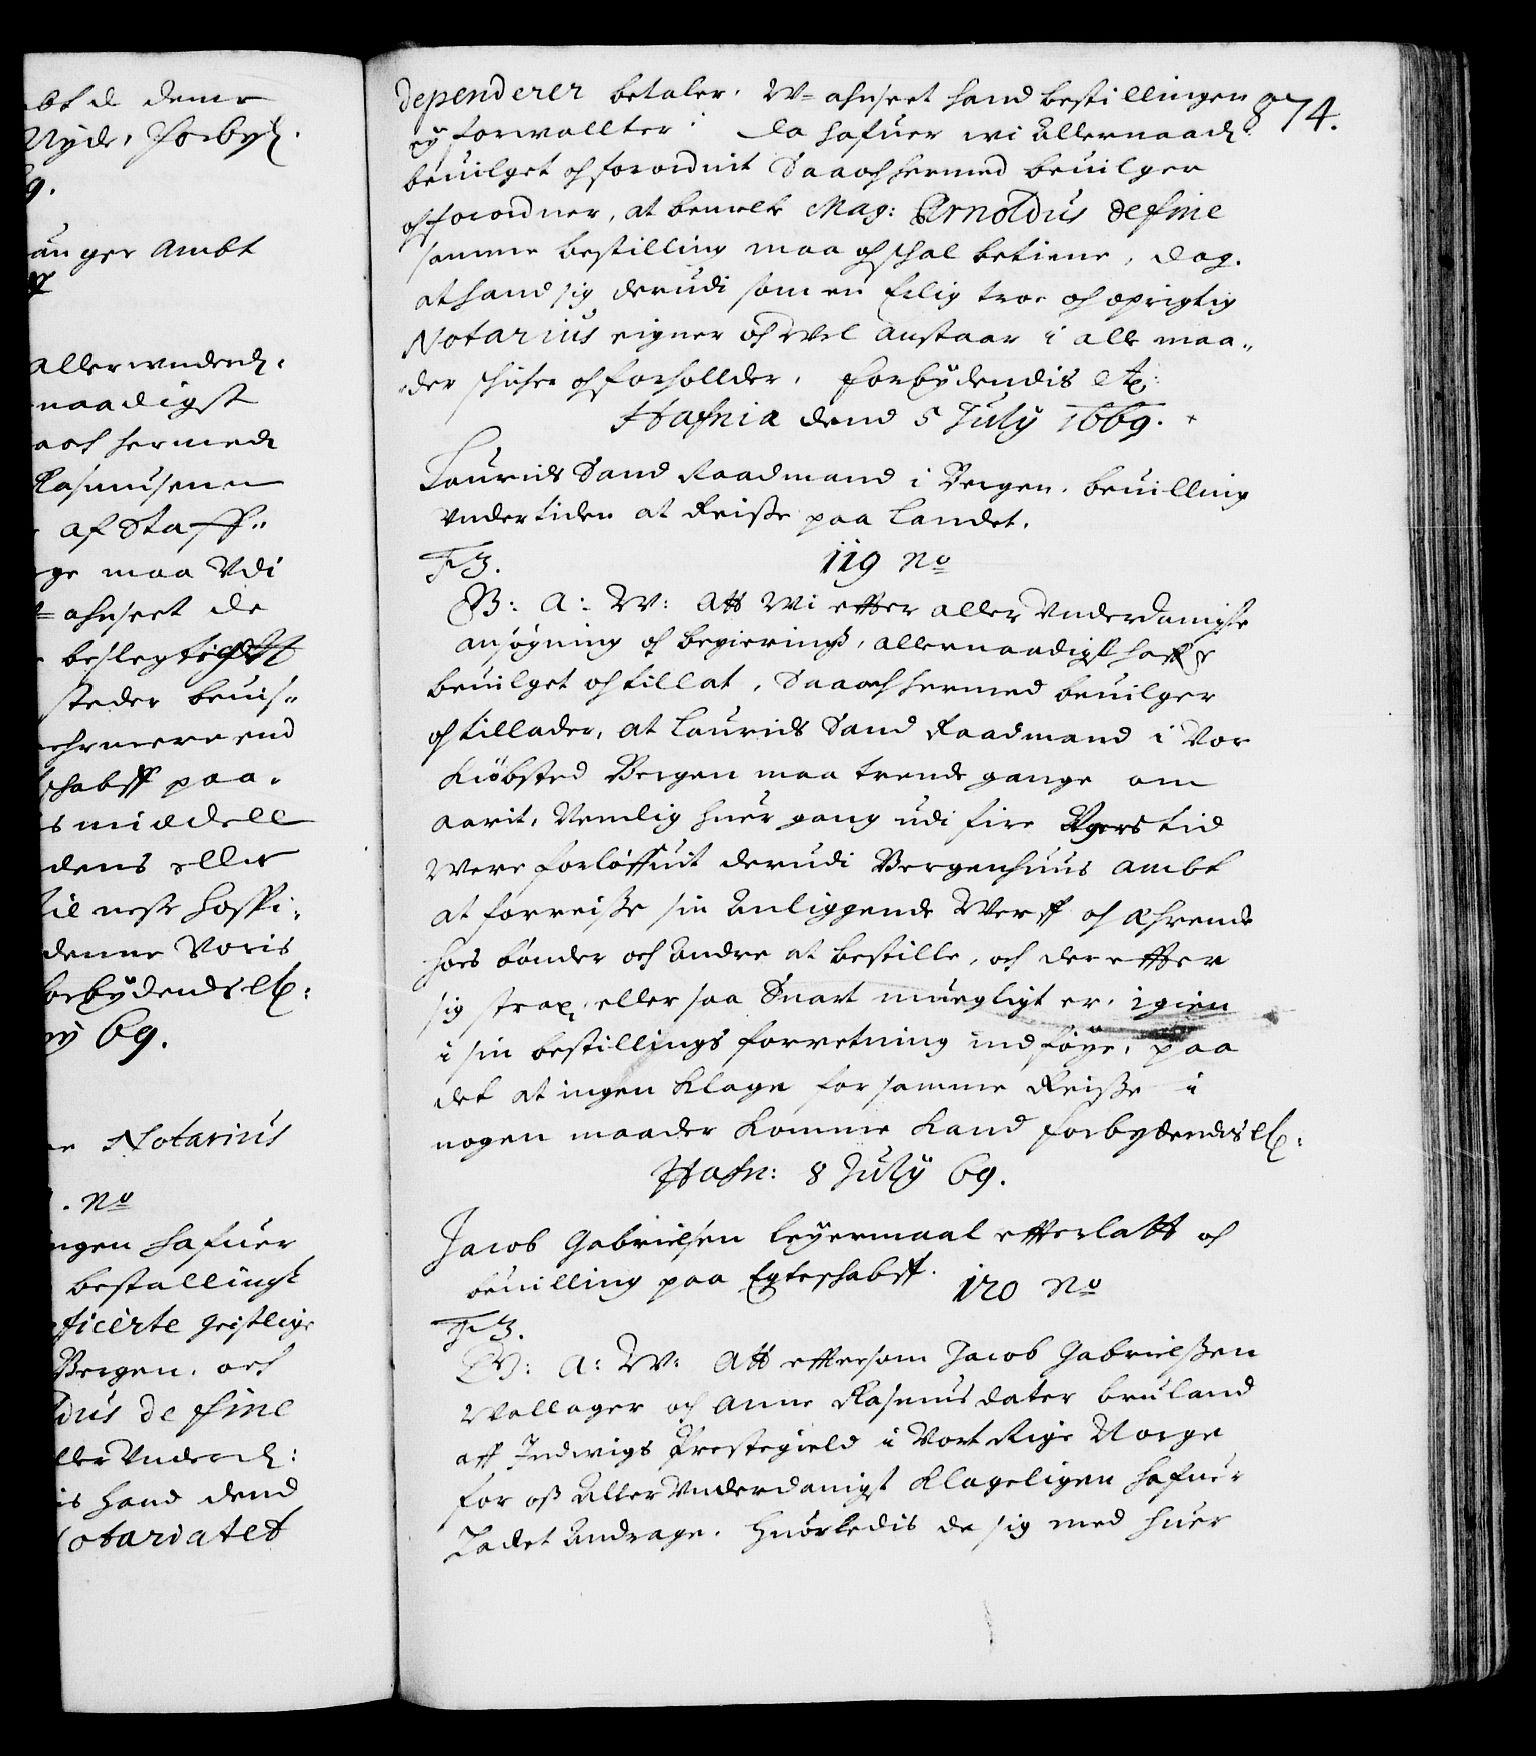 bt d denne
Nyde, Forbyd.
9.
anger Ambt
allerunderd:
naadigst
och hermed
Rasmusenn
af Staff-
ge maa Udi
ahnseet de
beslegtighett
steder beuis-
ehr mere end
schabff paa-
s middell
dens eller
til neste Hospi-
denne Voris
Forbydendis etc:
y 69.
Notarius
. No
ngen hafuer
bestalling
ficerte geistlige
Bergen, och
dus de fine
ller Underd:
is hand dend
otariatet
874.
dependerer betaler. W-ahnseet hand bestillingen
ey forwallter: da hafuer wi Allernaad:
beuilget och forordnit Saa och hermed beuilger
och forordner, at bemelte Mag: Arnoldus de fine
samme bestilling maa och schal betiene, dog.
at hand sig derudi som en Erlig troe och oprigtig
Notarius eigner och Wel anstaar i alle maa-
der schicher och forhollder. Forbydendis etc:
Hafnia dend 5 July 1669.
Laurids Sand Raadmand i Bergen. beuilling
Undertiden at Reisse paa Landet.
F3. 119 No
G: A: W: Att Wi effter aller Underdanigste
ansøgning och begiering, allernaadigst haffue
beuilget och tillat, Saa och hermed beuilger
och tillader, at Laurids Sand Raadmand i Vor
Kiøbsted Bergen maa trende gange om
aarit, Nemlig huer gang udi fire Ugers tid
Were forløffuit derudi Bergenhuus Ambt
at forreisse sin anliggende Werff och Ehrende
hoes bønder och andre at bestille, och der effter
sig strax, eller saa Snart mueligt er, igien
i sin bestillings forretning indføye, paa
det at ingen Klage for samme Reisse i
nogen maader Komme Kand Forbydendis etc:
Hafn: 8 July 69.
Jacob Gabrielsen Leyermaal efterlatt och
beuilling paa Egteschabff. 120 No
F3.
G: A: W: Att effterson Jacob Gabrielssen
Wallager och Anne Rasmusdater bruland
aff Indwigs Prestegield i Vort Rige Norge
for oss Aller Underdanigst Klageligen hafuer
Ladet andrage. Huorledis de sig med huer